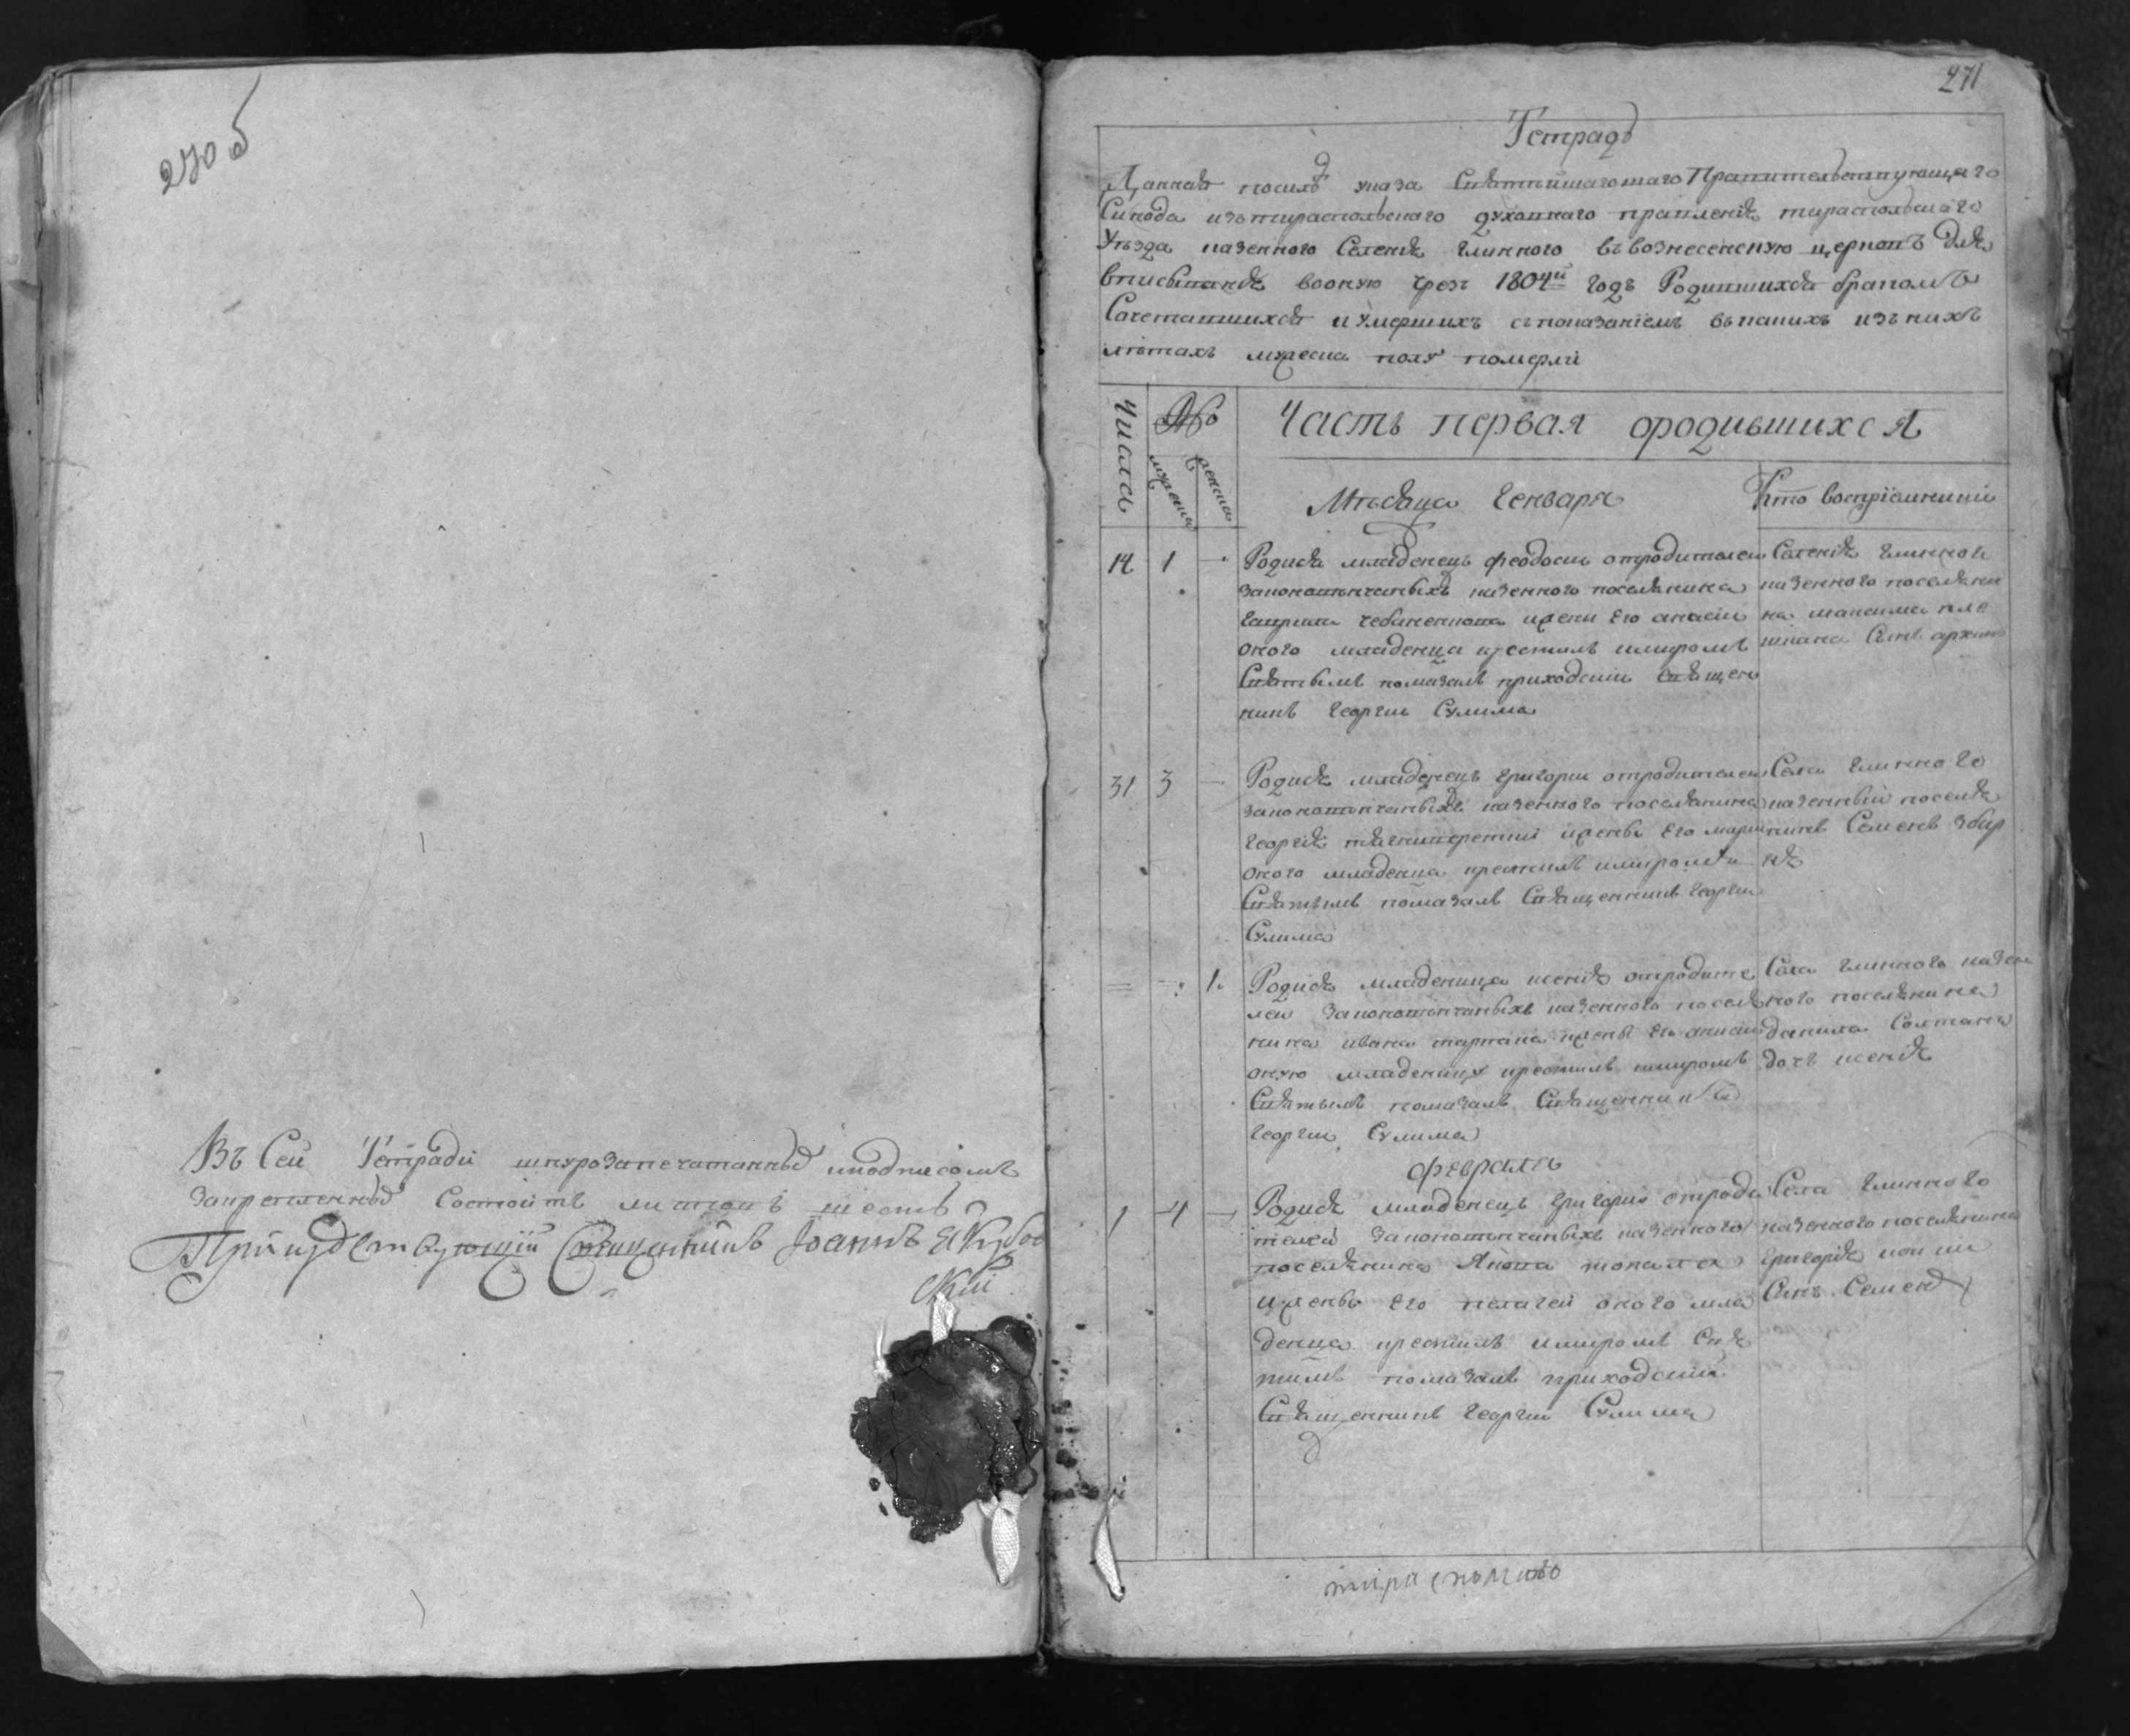 270 б
Въ Сей Тетради шнурозапечатанной иподписомъ
закрепленной Состоитъ листовъ шесть
Присудствующій Священникъ Іоаннъ Якубов
скій
271
Тетрадь
Данная посилѣ указа Святѣйшаго Правителствующаго
Синода изътираспольскаго духовнаго правленія тираспольскаго
Уѣзда казенного Селенія глинного въвознесенскую церковъ для
вписыванія вооную чрез 1804й годъ Родившихся бракомъ
Сочетавшихся иУмершихъ съпоказаніемъ въкакихъ изънихъ
лѣтахъ мужеска полу померли
Числа
№
Часть первая ородившихся
мужеска
женска
Мѣсяца Генваря
Кто воспріемники
14 1 —
Родися младенецъ феодоси отродителеи
законовѣнчаныхъ казенного поселянина
гаврила чебаненкова ижени Его анасіи
оного младенца крестилъ имиромъ
Святымъ помазалъ приходски Священ
никъ Георгии Сулима
Селенія глинного
казенного поселяни
на максима пле
шкана Синъ архип
31 3 —
Родися младенецъ григори отродителеи
законовѣнчаныхъ казенного поселянина
Георгія иженьі Его мари
оного младенца крестилъ имиромъ
Святымъ помазалъ Священникъ Георги
Сулима
Села глинного
казенный поселя
нинъ Семенъ збар
ня
= 1.
Родися младеница ксенія отродите
леи законовѣнчаныхъ казенного поселя
нина ивана тартана жены Его анисии
оную младеницу крестилъ имиромъ
Святымъ помазалъ Священникъ
Георгии Сулима
Села глинного казен
ного поселянина
данила Солтана
дочъ ксенія
февраля
1 4 —
Родися младенецъ григори отроди
телей законовѣнчаныхъ казенного
поселянина Якова топала
иженьі Его пелагеи оного мла
денца крестилъ имиромъ Свя
тимъ помазалъ приходский
Священникъ Георгии Сулима
Села глинного
казенного поселянина
григорія
Синъ Семенъ